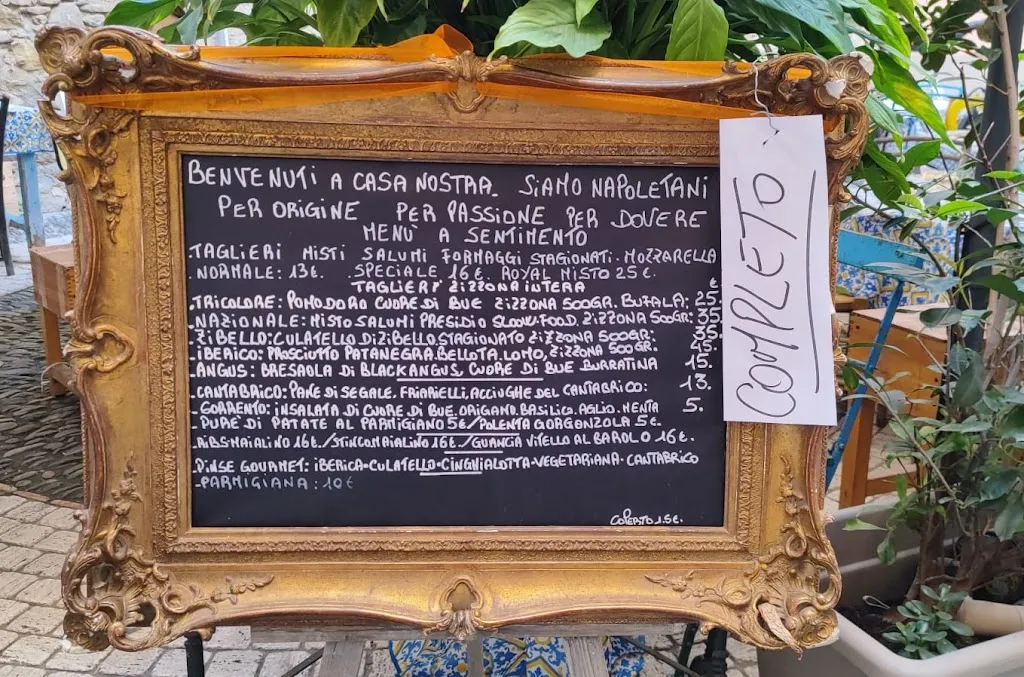 BENVENUTI A CASA NOSTRA. SIAMO NAPOLETANI
PER ORIGINE PER PASSIONE PER DOVERE
MENÙ A SENTIMENTO
.TAGLIERI MISTI SALUMI FORMAGGI STAGIONATI. MOZZARELLA
.NORMALE: 13€. .SPECIALE 16€. ROYAL MISTO 25€.
TAGLIERI ZIZZONA INTERA €
.TRICOLORE: POMODORO CUORE DI BUE ZIZZONA 500GR. BUFALA: 25.
.NAZIONALE: MISTO SALUMI PRESIDIO SLOW FOOD. ZIZZONA 500GR: 35.
.ZIBELLO: CULATELLO DI ZIBELLO STAGIONATO ZIZZONA 500GR: 35.
.IBERICO: PROSCIUTTO PATANEGRA. BELLOTA. LOMO, ZIZZONA 500GR.
.ANGUS: BRESAOLA DI BLACKANGUS, CUORE DI BUE BURRATINA 15.
.CANTABRICO: PANE DI SEGALE. FRIARIELLI, ACCIUGHE DEL CANTABRICO: 13.
.SORRENTO: INSALATA DI CUORE DI BUE. ORIGANO. BASILICO. AGLIO. MENTA 5.
.PURE DI PATATE AL PARMIGIANO 5€ / POLENTA GORGONZOLA 5€.
.RIBS MAIALINO 16€. / STINCO MAIALINO 16€. / GUANCIA VITELLO AL BAROLO 16€.
.PINSE GOURMET: IBERICA-CULATELLO-CINGHIALOTTA-VEGETARIANA-CANTABRICO
.PARMIGIANA: 10€
COPERTO 1.5€.
COMPLETO